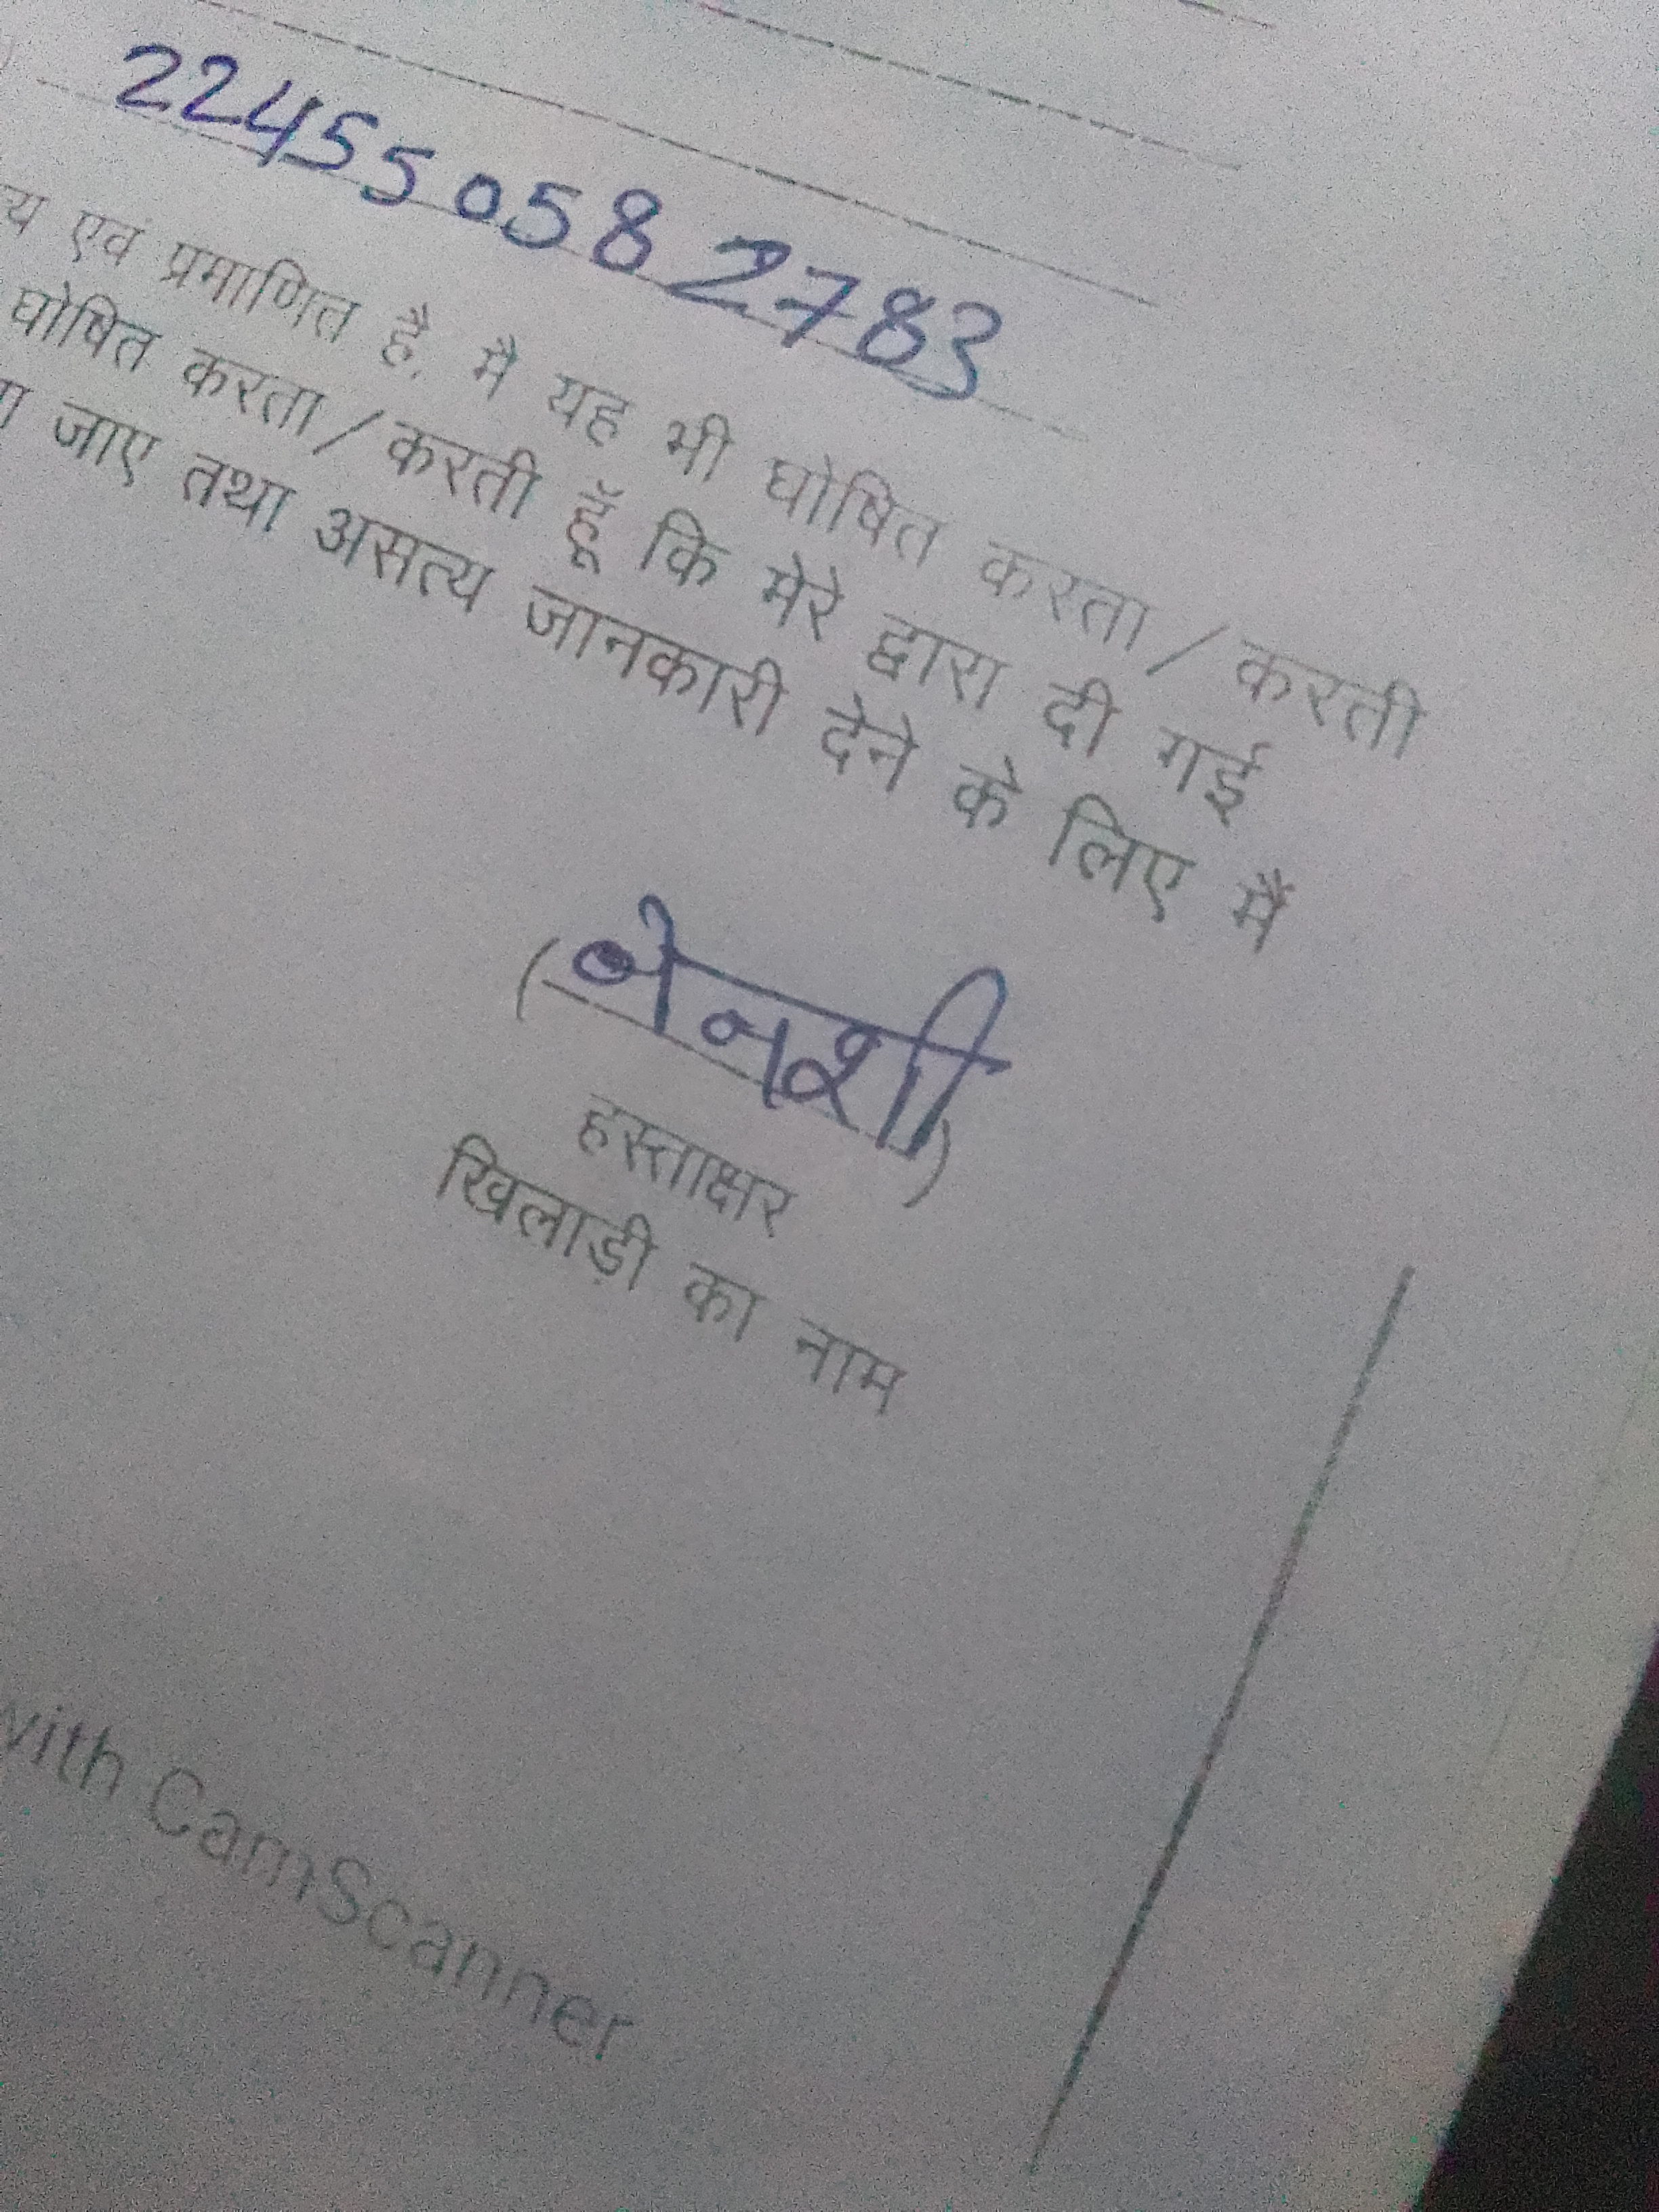 22455058 2783
एवं प्रमाणित है. मै यह भी घोषित करता/करती
घोषित करता/करती हूँ कि मेरे द्वारा दी गई
जाए तथा असत्य जानकारी देने के लिए मैं
( )
हस्ताक्षर
खिलाड़ी का नाम
with CamScanner